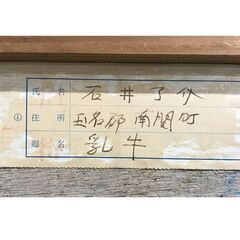 氏名 石井了介
① 住所 玉名郡南関町
題名 乳牛